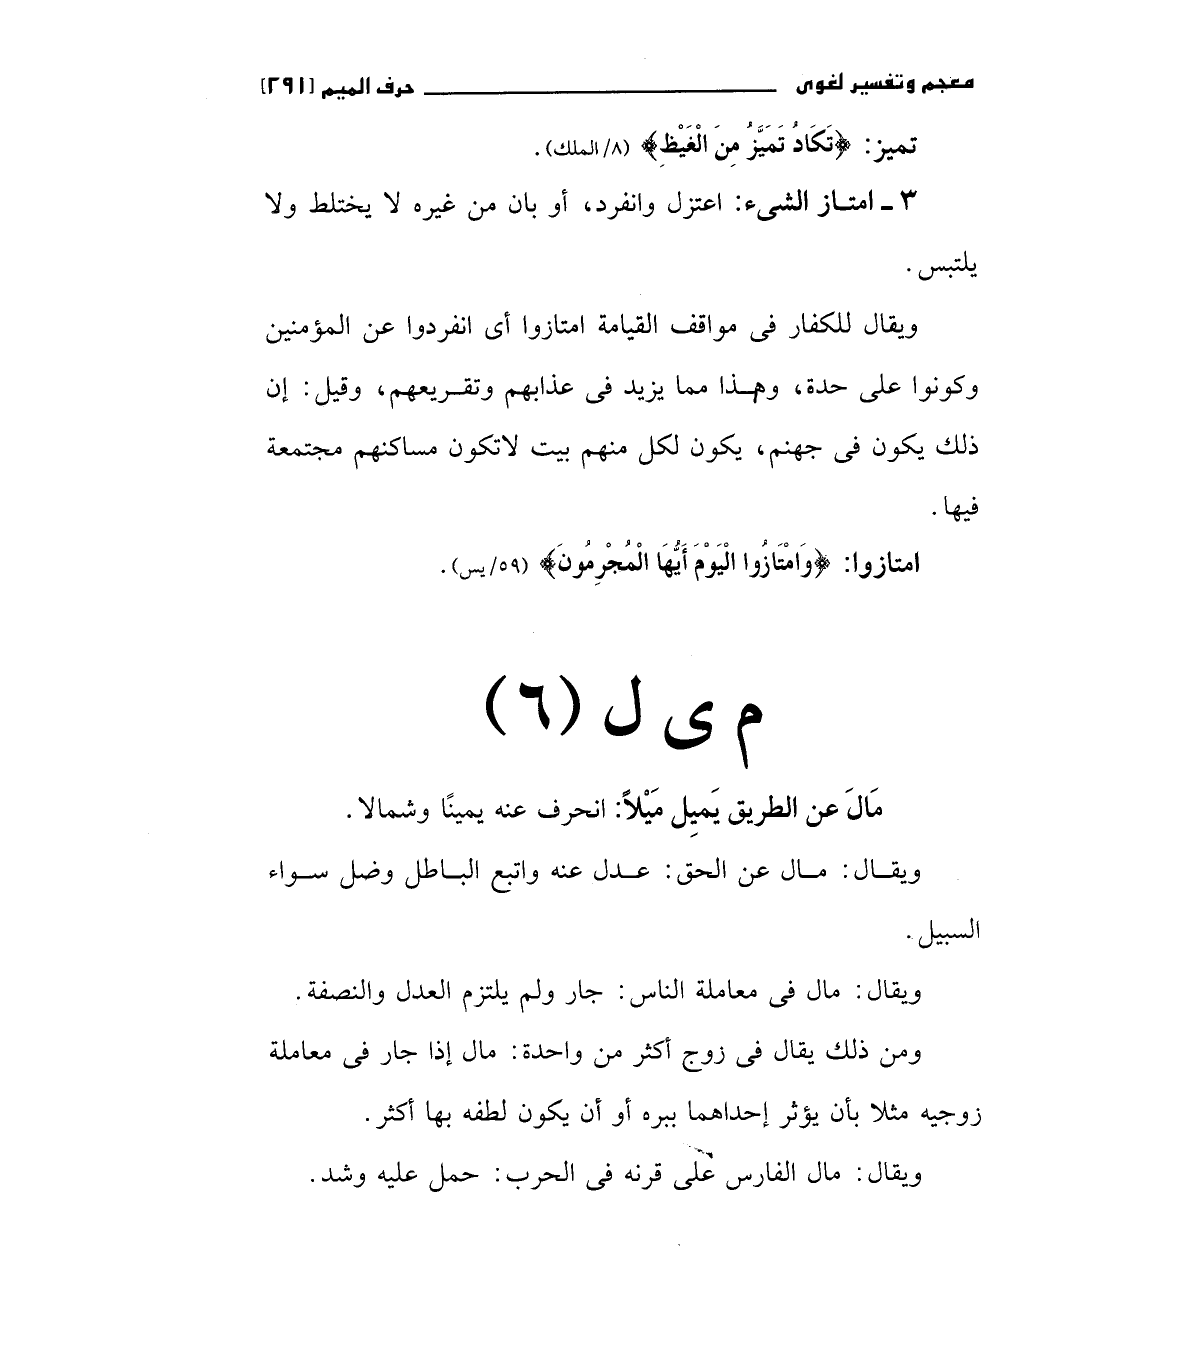 معجم وتفسير لغوى حرف الميم [٢٩١]
تميز: ﴿تَكَادُ تَمَيَّزُ مِنَ الْغَيْظِ﴾ (٨/ الملك).
٣ ـ امتـاز الشىء: اعتزل وانفرد، أو بان من غيره لا يختلط ولا
يلتبس.
ويقال للكفار فى مواقف القيامة امتازوا أى انفردوا عن المؤمنين
وكونوا على حدة، وهـذا مما يزيد فى عذابهم وتقـريعهم، وقيل: إن
ذلك يكون فى جهنم، يكون لكل منهم بيت لاتكون مساكنهم مجتمعة
فيها.
امتازوا: ﴿وَامْتَازُوا الْيَوْمَ أَيُّهَا الْمُجْرِمُونَ﴾ (٥٩/ يس).
م ى ل (٦)
مَالَ عن الطريق يَمِيل مَيْلاً: انحرف عنه يمينًا وشمالا.
ويقـال: مـال عن الحق: عـدل عنه واتبع البـاطل وضل سـواء
السبيل.
ويقال: مال فى معاملة الناس: جار ولم يلتزم العدل والنصفة.
ومن ذلك يقال فى زوج أكثر من واحدة: مال إذا جار فى معاملة
زوجيه مثلا بأن يؤثر إحداهما ببره أو أن يكون لطفه بها أكثر.
ويقال: مال الفارس على قرنه فى الحرب: حمل عليه وشد.